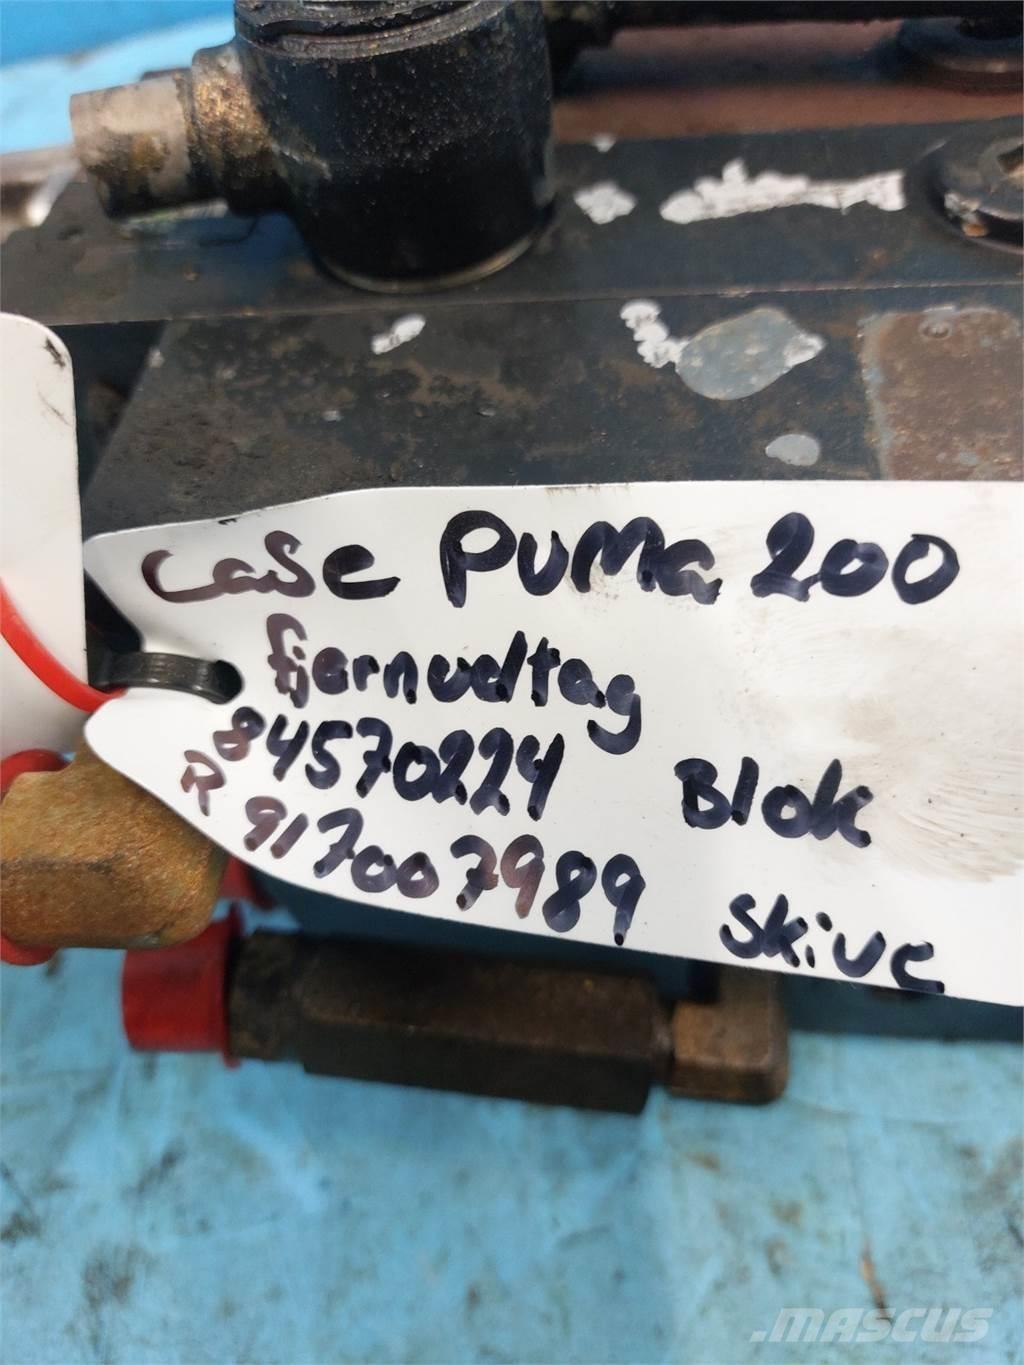 Case Puma 200
fjernudtag
84570224 Blok
R 917007989 Skive
.MASCUS